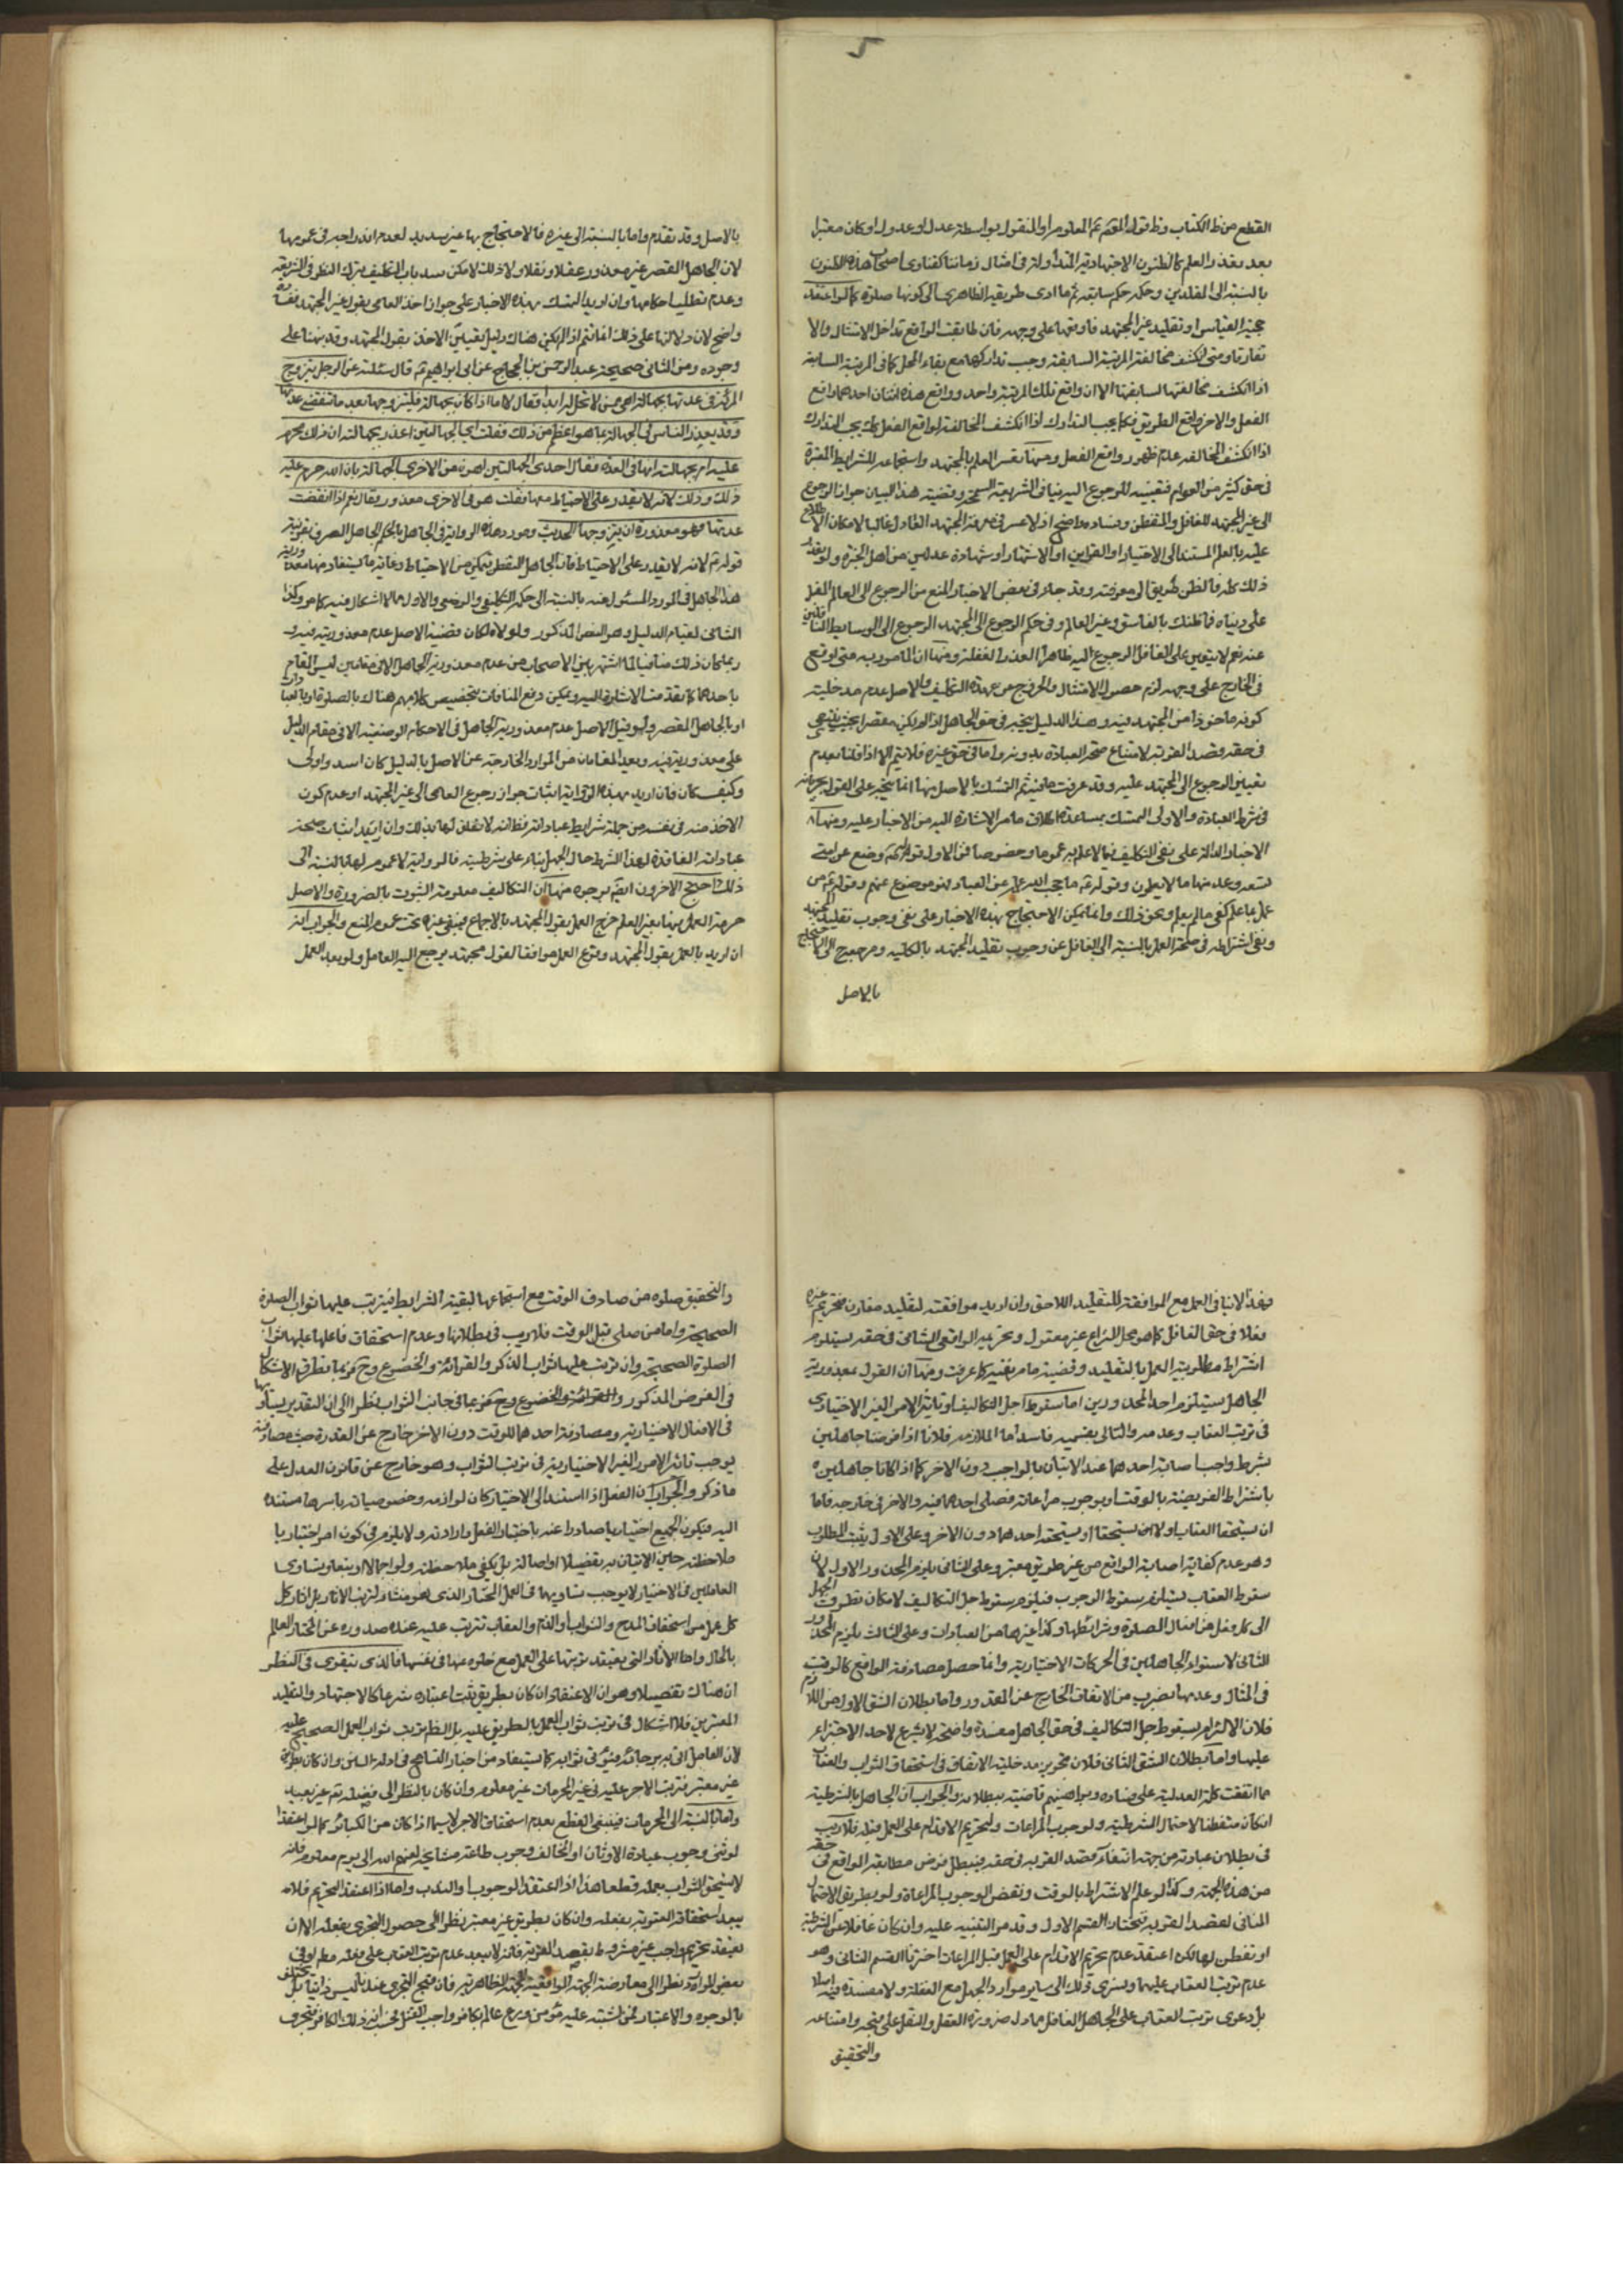 القطع من ظ الكتاب وظ قوله المقيم ثم المعلوم او المنقول بواسطة عدل او عدول او كان معتبرا
بعد تعذر العلم كالظنون الاجتهادية المتداولة في امثال زماننا كفتاوى اصحاب هذه الظنون
بالنسبة الى المقلدين وحكمه حكم سابقه ثم ما ادى طريقه الظاهري الى كونها صلوة كما لو اعتقد
حجية القياس او تقليد غير المجتهد فاوقعها على وجهه فان طابقت الواقع تداخل الامتثال والا
تفارقا ومتى انكشف مخالفة المرتبة السابقة وجب تداركها مع بقاء المحل كما في المرتبة السابقة
اذا انكشف مخالفتها لسابقتها الا ان واقع تلك المرتبة واحد وواقع هذه اثنان احدهما واقع
الفعل والاخر واقع الطريق فكما يجب التدارك اذا انكشف المخالفة لواقع الفعل كذا يجب التدارك
اذا انكشف المخالفة عدم ظهور واقع الفعل ومنها تعسر العلم بالمجتهد واستجماعه للشرايط المقررة
في حق كثير من العوام فتعيينه للرجوع اليه ينافي الشريعة السمحة وقضية هذا البيان جواز الرجوع
الى غير المجتهد للغافل والمتفطن وفساده واضح اذ لا عسر في معرفة المجتهد العادل غالبا لامكان الاطلاع
عليه بالعلم المستند الى الاختبار او القراين او الاشتهار او شهادة عدلين من اهل الخبرة ولو تعذر
ذلك كله فالظن طريق الى معرفته وقد جاء في بعض الاخبار المنع من الرجوع الى العالم المقبل
على دنياه فما ظنك بالفاسق وغير العالم وفي حكم الرجوع الى المجتهد الرجوع الى الوسايط الناقلين
عنه نعم لا يتعين على الغافل الرجوع اليه ظاهرا لعذر الغفلة ومنها ان المامور به متى اوقع
في الخارج على وجهه لزم حصول الامتثال والخروج عن عهدة التكليف والاصل عدم مدخلية
كونه ماخوذا من المجتهد فيه وهذا الدليل يتجه في حق الجاهل اذا لم يكن مقصرا بحيث ينتفي
في حقه قصد القربة لامتناع صحة العبادة بدونه واما في حق غيره فلا يتم الا اذا قلنا بعدم
تعيين الرجوع الى المجتهد عليه وقد عرفت ما فيه ثم التمسك بالاصل فيها انما يتجه على القول بجريانه
في شرط العبادة والاولى التمسك بمساعدة اطلاق ما مر الاشارة اليه من الاخبار عليه ومنها
الاخبار الدالة على نفي التكليف فيما لا علم به عموما وخصوصا فمن الاول قوله وضع عن امتي
تسعة وعد منها ما لا يعلمون وقوله ع ما حجب الله علمه عن العباد فهو موضوع عنهم وقوله ع من
عمل بما علم كفى ما لم يعلم ونحو ذلك وانما يمكن الاحتجاج بهذه الاخبار على نفي وجوب تقليد المجتهد
ونفي اشتراطه في صحة العمل بالنسبة الى الغافل عن وجوب تقليد المجتهد بالكلية ومرجعه الى الاحتجاج
بالاصل
بالاصل وقد تقدم واما بالنسبة الى غيره فالاحتجاج بها غير سديد لعدم اندراجه في عمومها
لان الجاهل المقصر غير معذور عقلا ونقلا ولا ذلك لامكن سد باب التكليف بترك النظر في الشريعة
وعدم تطلب احكامها وان اريد التمسك بهذه الاخبار على جواز اخذ العامي بقول غير المجتهد ففساده
واضح لان دلالتها على ذلك انما تتم اذا لم يكن هناك دليل تعيين الاخذ بقول المجتهد وقد بينا على
وجوده ومن الثاني صحيحة عبد الرحمن بن الحجاج عن ابي ابراهيم ع قال سئلته عن الرجل يتزوج
المرئة في عدتها بجهالة اهي ممن لا تحل له ابدا فقال لا اما اذا كان بجهالة فليتزوجها بعد ما تنقضي عدتها
وقد يعذر الناس في الجهالة بما هو اعظم من ذلك فقلت اي الجهالتين اعذر بجهالته ان ذلك محرم
عليه ام بجهالته انها في العدة فقال احدى الجهالتين اهون من الاخرى الجهالة بان الله حرم عليه
ذلك وذلك لانه لا يقدر على الاحتياط معها فقلت هو في الاخرى معذور فقال نعم اذا انقضت
عدتها فهو معذور في ان يتزوجها الحديث ومورد هذه الرواية في الجاهل بالحكم الجاهل الصرف بقرينة
قوله ع لانه لا يقدر على الاحتياط فان الجاهل المتفطن يتمكن من الاحتياط وغاية ما يستفاد منها معذورية
هذا الجاهل في المورد المسئول عنه بالنسبة الى حكمه التكليفي والوضعي والاول مما لا اشكال فيه كما مر وكذا
الثاني لقيام الدليل وهو النص المذكور ولولاه لكان قضية الاصل عدم معذوريته فيه و
ربما كان ذلك منافيا لما اشتهر بين الاصحاب من عدم معذورية الجاهل الا في مقامين ليس المقام
باحدهما كما تقدمت الاشارة اليه ويمكن دفع المنافات بتخصيص كلامهم هناك بالصلوة او بالعبادات
او بالجاهل المقصر ولو قيل الاصل عدم معذورية الجاهل في الاحكام الوضعية الا في مقام الدليل
على معذوريته فيه ويعد المقامان من الموارد الخارجة عن الاصل بالدليل كان اسد واولى
وكيف كان فان اريد بهذه الرواية اثبات جواز رجوع العامي الى غير المجتهد او عدم كون
الاخذ منه في نفسه من جملة شرايط عباداته فظ انه لا تعلق لها بذلك وان اريد اثبات صحة
عباداته الفاقدة لهذا الشرط حال الجهل بناء على شرطيته فالرواية لا عموم لها بالنسبة الى
ذلك احتج الاخرون ايضا بوجوه منها ان التكاليف معلومة الثبوت بالضرورة والاصل
حرمة العمل فيها بغير العلم خرج العمل بقول المجتهد بالاجماع فيبقى غيره تحت عموم المنع والجواب انه
ان اريد بالعمل بقول المجتهد وقوع العمل موافقا لقول مجتهد يرجع اليه العامل ولو بعد العمل
فهذا لا ينافي العمل مع الموافقة للتقليد اللاحق وان اريد موافقته لتقليد مقارن فتحريم غيره
فعلا في حق الغافل كما هو محل النزاع غير معقول وتحريمه الواقعي الشاني في حقه يستلزم
اشتراط مطلوبية العمل بالتقليد وقضية ما مر نفيه كما عرفت ومنها ان القول بمعذورية
الجاهل يستلزم احد المحذورين اما سقوط اجل التكاليف او تاثير الامر الغير الاختياري
في ترتب العقاب وعدمه والتالي بقسميه فاسد اما الملازمة فلانا اذا فرضنا جاهلين
بشرط واجب اصابه احدهما عند الاتيان بالواجب دون الاخر كما اذا كانا جاهلين
باشتراط الفريضة بالوقت او بوجوب مراعاته فصلى احدهما فيه والاخر في خارجه فاما
ان يستحقا العقاب او لا او يستحقه احدهما دون الاخر وعلى الاول يثبت المطلوب
وهو عدم كفاية اصابة الواقع من غير طريق معتبر وعلى الثاني يلزم المحذور الاول لان
سقوط العقاب يستلزم سقوط الوجوب فيلزم سقوط جل التكاليف لامكان تطرق الجهل
الى كل فعل من افعال الصلوة وشرائطها وكذا غيرها من العبادات وعلى الثالث يلزم المحذور
الثاني لاستواء الجاهلين في الحركات الاختيارية وانما حصل مصادفة الواقع كالوقت
في المثال وعدمها بضرب من الاتفاق الخارج عن المقدور واما بطلان الشق الاول من اللازم
فلان الالتزام بسقوط جل التكاليف في حق الجاهل مفسدة واضحة لا يشرع لاحد الاجتراء
عليها واما بطلان الشق الثاني فلان تجويز مدخلية الاتفاق في استحقاق الثواب والعقاب
مما اتفقت كلمة العدلية على فساده وبراهينهم قاضية ببطلانه والجواب ان الجاهل بالشرطية
ان كان متفطنا لاحتمال الشرطية ولوجوب المراعات ولتحريم الاقدام على العمل قبله فلا ريب
في بطلان عبادته من جهة انتفاء قصد القربة في حقه فيبطل فرض مطابقة الواقع في حقه
من هذه الجهة وكذا لو علم الاشتراط بالوقت ونقض الوجوب المراعاة ولو بطريق الاحتمال
المنافي لقصد القربة فنختار القسم الاول وقد مر التنبيه عليه وان كان غافلا عن الشرطية
او تفطن لها لكن اعتقد عدم تحريم الاقدام على العمل قبل المراعات اخترنا القسم الثاني وهو
عدم ترتب العقاب عليهما ويسري ذلك الى ساير موارد الجهل مع الغفلة ولا مفسدة فيه اصلا
بل دعوى ترتب العقاب على الجاهل الغافل مما دل ضرورة العقل والنقل على قبحه وامتناعه
والتحقيق
والتحقيق صلوة من صادف الوقت مع استجماعها لبقية الشرايط فيترتب عليها ثواب الصلوة
الصحيحة واما من صلى قبل الوقت فلا ريب في بطلانها وعدم استحقاق فاعلها عليها ثواب
الصلوة الصحيحة وان ترتب عليها ثواب الذكر والقرائة والخضوع وح فربما تطرق الاشكال
في الفرض المذكور في جانب الثواب نظرا الى ان التقدير تساويهما
في الافعال الاختيارية ومصادفة احدهما للوقت دون الاخر خارج عن القدرة فمصادفته
يوجب تاثير الامور الغير الاختيارية في ترتب الثواب وهو خارج عن قانون العدل على
ما ذكر والجواب ان الفعل اذا استند الى الاختيار كان لوازمه وخصوصياته باسرها مستندة
اليه فيكون الجميع اختياريا صادرا عنه باختيار الفعل وارادته ولا يلزم في كون امر اختياريا
ملاحظته حين الاتيان به تفصيلا او اصالة بل يكفي ملاحظته ولو اجمالا او بتعا وتساوي
العاملين في الاختيار لا يوجب تساويهما في العمل المختار الذي هو منشاء لترتب الاثار بل اثار كل
كل عمل من استحقاق المدح والثواب او الذم والعقاب تترتب عليه عند صدوره عن المختار العالم
بالحال واما الاثار التي يعتقد ترتبها على العمل مع خلوه عنها في نفسها فالذي يتقوى في النظر
ان هناك تفصيلا وهو ان الاعتقاد ان كان بطريق ثبت اعتباره شرعا كالاجتهاد والتقليد
المعتبرين فلا اشكال في ترتب ثواب العمل بالطريق عليه بل الظ ترتب ثواب العمل الصحيح عليه
لان العامل اتى به برجائه فيؤتى ثوابه كما يستفاد من اخبار التسامح في ادلة السنن وان كان بطريق
غير معتبر فترتب الاجر عليه في غير المحرمات غير معلوم وان كان بالنظر الى فضله تع غير بعيد
واما بالنسبة الى المحرمات فينبغي القطع بعدم استحقاق الاجر لا سيما اذا كان من الكبائر كما لو اعتقد
لوثني وجوب عبادة الاوثان او المخالف وجوب طاعة مشايخه لعنهم الله الى يوم معلوم فانه
لا يستحق الثواب بعمله قطعا هذا اذا اعتقد الوجوب او الندب واما اذا اعتقد التحريم فلا
يبعد استحقاق العقوبة بفعله وان كان بطريق غير معتبر نظرا الى حصول التجري بفعله الا ان
يعتقد تحريم واجب غير مشروط بقصد القربة فانه لا يبعد عدم ترتب العقاب على فعله مطلقا او في
بعض الموارد نظرا الى معارضة الجهة الواقعية للجهة الظاهرية فان قبح التجري عندنا ليس ذاتيا بل يختلف
بالوجوه والاعتبار فمن اشتبه عليه مؤمن ورع عالم بكافر واجب القتل فحسب انه ذلك الكافر فتجرى